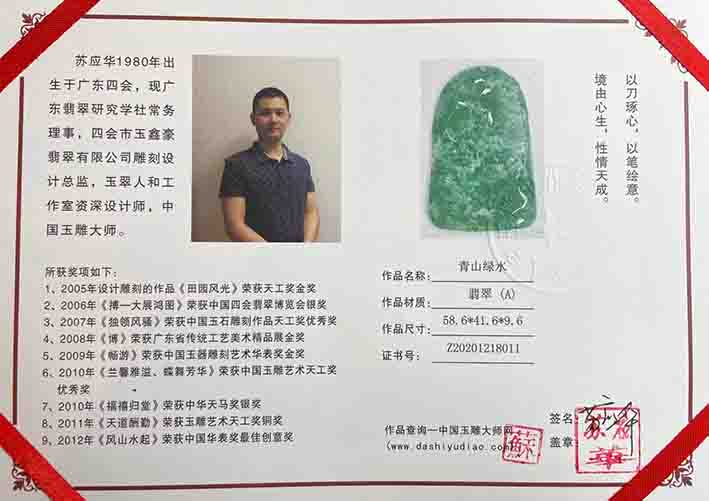 苏应华1980年出
生于广东四会，现广
东翡翠研究学社常务
理事，四会市玉鑫豪
翡翠有限公司雕刻设
计总监，玉翠人和工
作室资深设计师，中
国玉雕大师。
以刀琢心，以笔绘意。
境由心生，性情天成。
所获奖项如下：
1、2005年设计雕刻的作品《田园风光》荣获天工奖金奖
2、2006年《搏一大展鸿图》荣获中国四会翡翠博览会银奖
3、2007年《独领风骚》荣获中国玉石雕刻作品天工奖优秀奖
4、2008年《博》荣获广东省传统工艺美术精品展金奖
5、2009年《畅游》荣获中国玉器雕刻艺术华表奖金奖
6、2010年《兰馨雅溢、蝶舞芳华》荣获中国玉雕艺术天工奖
优秀奖
7、2010年《福禧归堂》荣获中华天马奖银奖
8、2011年《天道酬勤》荣获玉雕艺术天工奖铜奖
9、2012年《风山水起》荣获中国华表奖最佳创意奖
作品名称：青山绿水
作品材质：翡翠 (A)
作品尺寸：58.6*41.6*9.6
证书号：Z20201218011
作品查询一中国玉雕大师网
(www.dashiyudiao.com)
蘇
签名：
盖章：